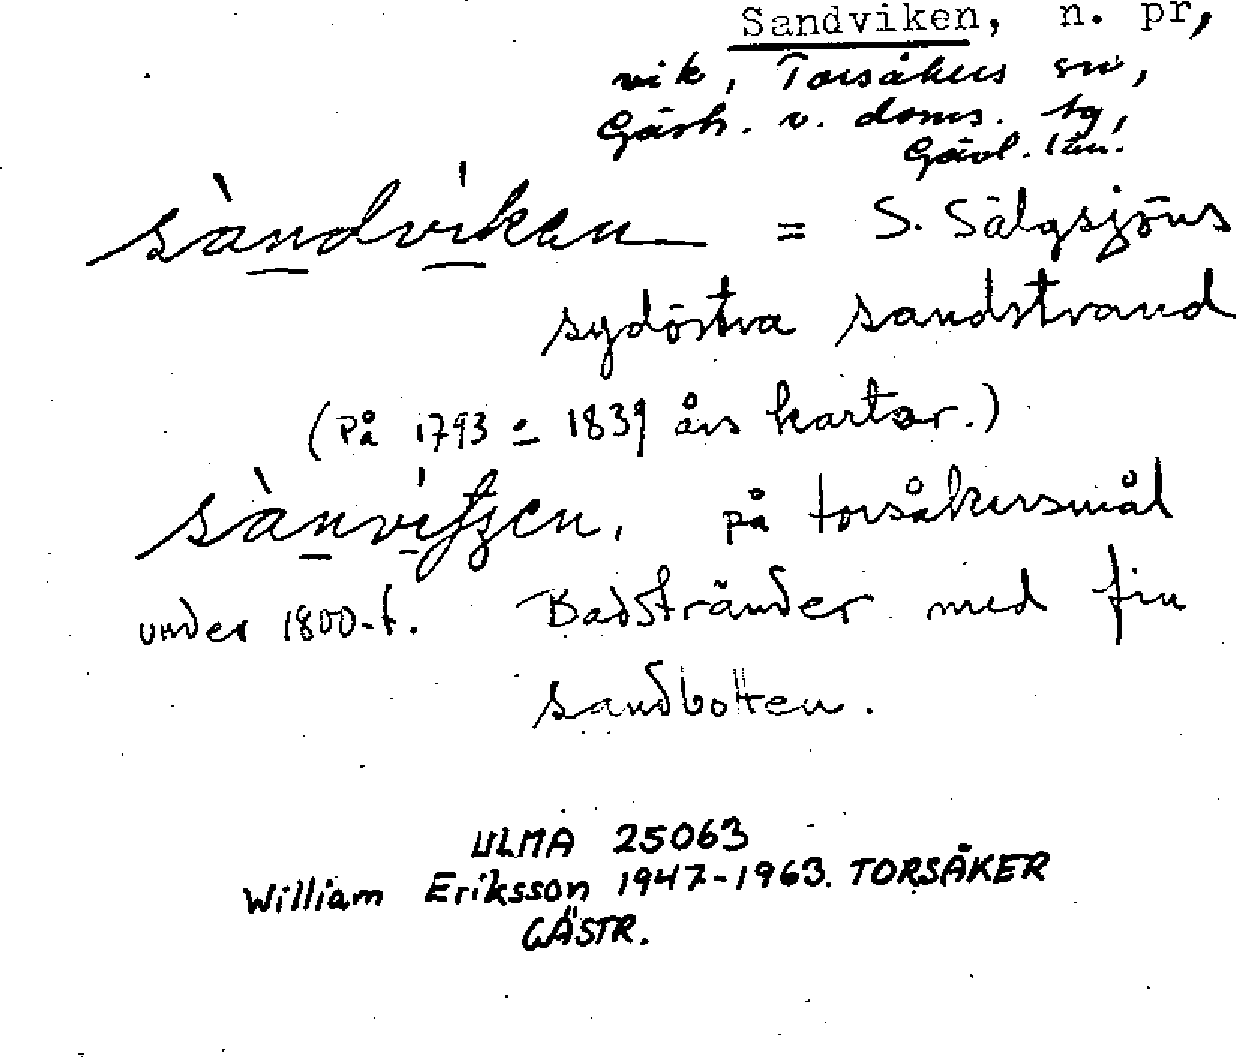 Sandviken, n. pr,
vik, Torsåkers sn,
Gästr. v. doms. tg,
Gävl. län.
sàndvíken = S. Sälgsjöns
sydöstra sandstrand
(På 1793 - 1839 års kartor.)
på torsåkersmål
under 1800-t. Badstränder med fin
sandbotten.
ULMA 25063
William Eriksson 1947-1963. TORSÅKER
GÄSTR.